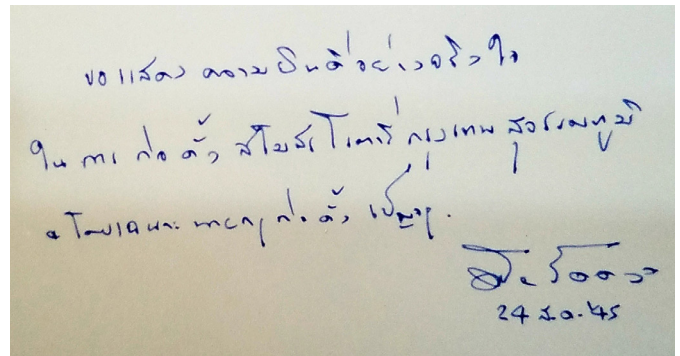 ขอแสดงความยินดีอย่างจริงใจ
ในการก่อตั้งสโมสรโรตารี่กรุงเทพสุวรรณภูมิ
โดยเฉพาะนายกก่อตั้ง
24 ส.ค. 45